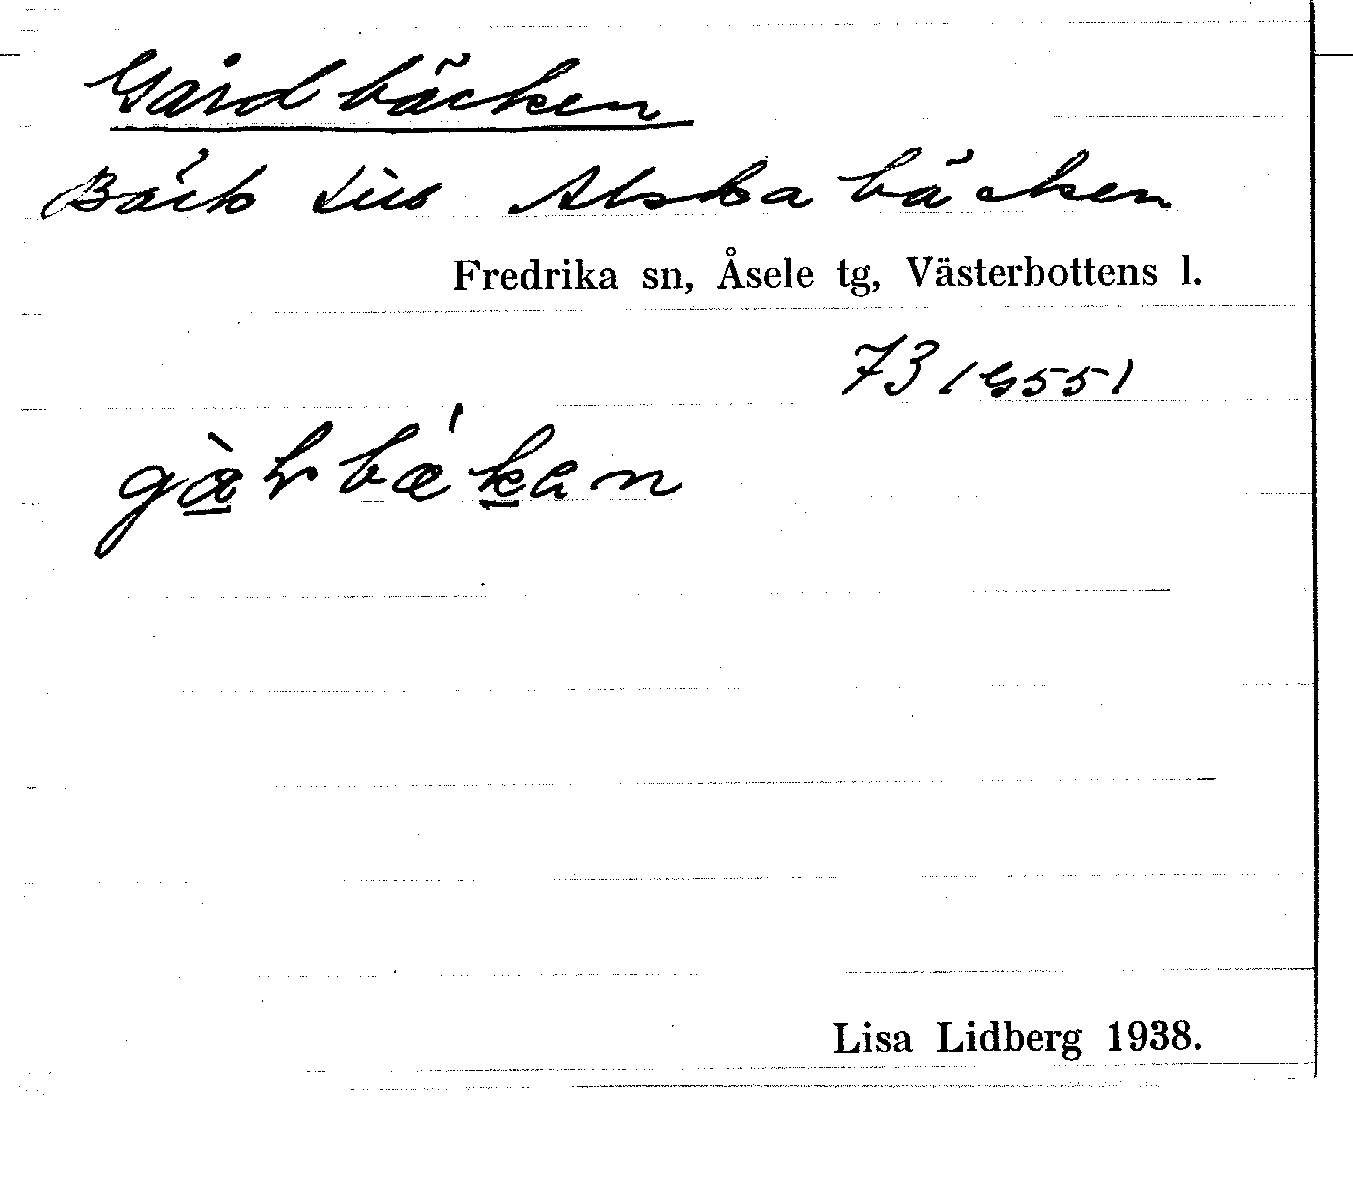 Gårdbäcken
Bäck till Alskabäcken
Fredrika sn, Åsele tg, Västerbottens l.
73/G551
Lisa Lidberg 1938.